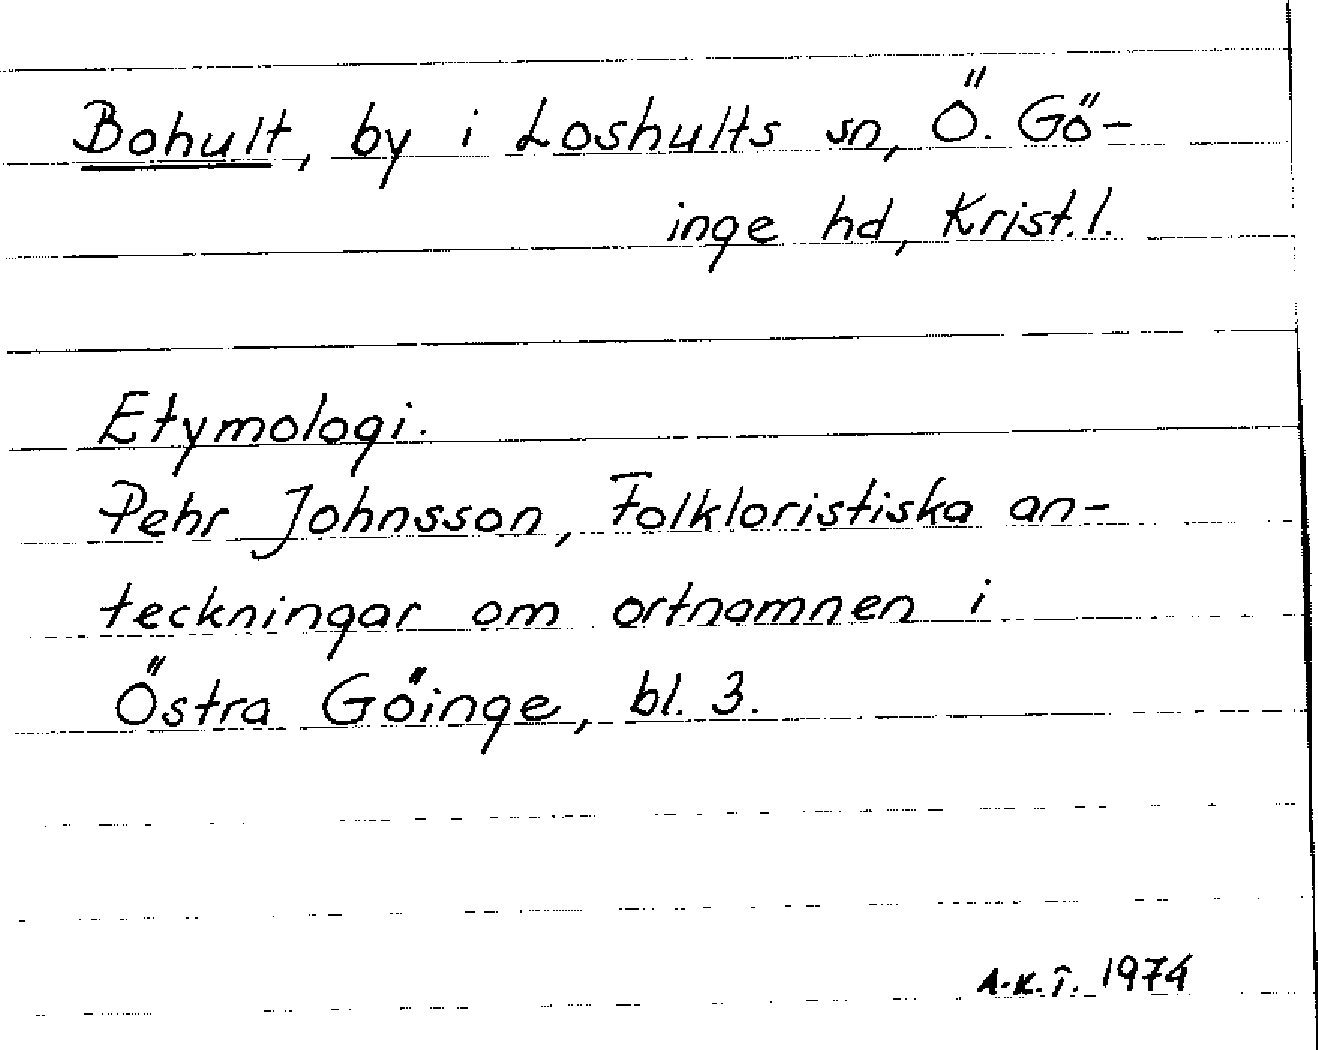 Bohult, by i Loshults sn, Ö. Gö-
inge hd, Krist. l.
Etymologi.
Pehr Johnsson, Folkloristiska an-
teckningar om ortnamnen i
Östra Göinge, bl. 3.
A-K. T. 1974